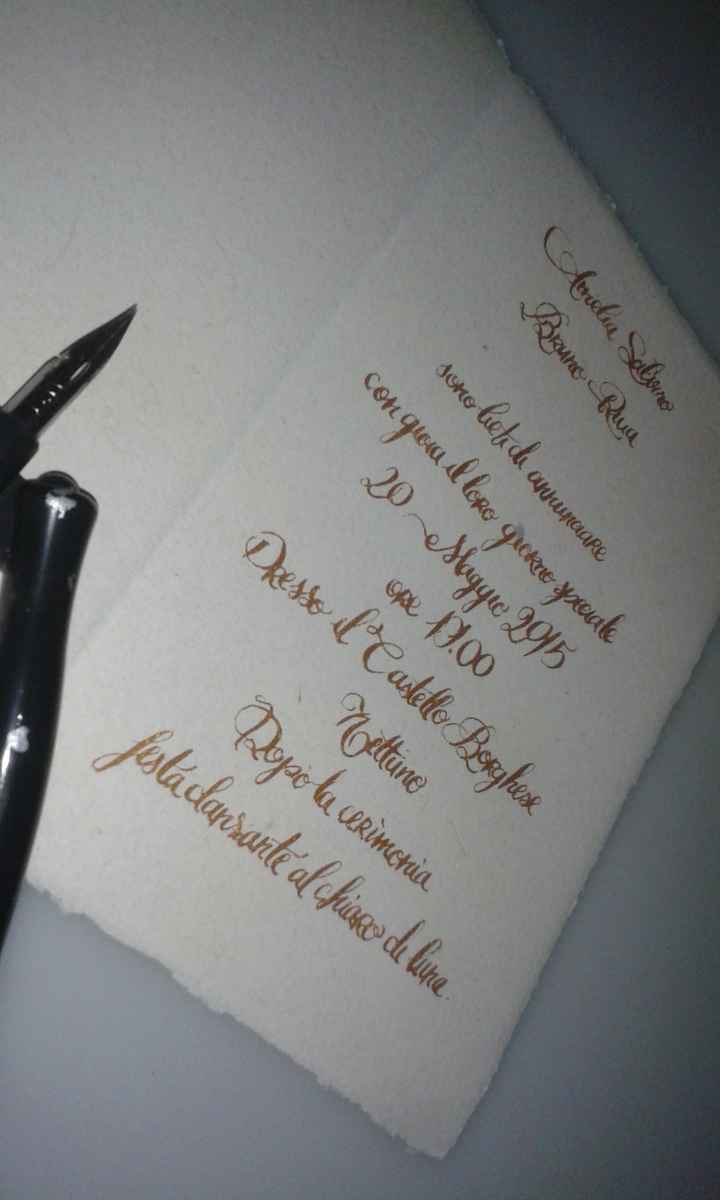 Amelia Salerno
Bruno Riva
sono lieti di annunciare
con gioia il loro giorno speciale
20 Maggio 2015
ore 17.00
Presso il Castello Borghese
Nettuno
Dopo la cerimonia
festa danzante al chiaro di luna.